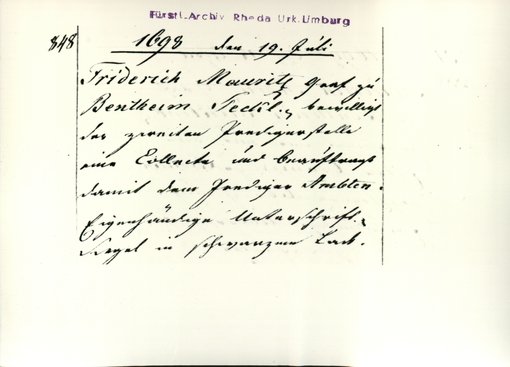 Fürstl. Archiv Rheda Urk. Limburg
848
1698 den 19. Juli
Friderich Mauritz Graf zu
Bentheim Teckl. bewilligt
der zweiten Predigerstelle
eine Collecte und beauftragt
damit dem Prediger
Eigenhändige Unterschrift.
Siegel in schwarzem Lack.